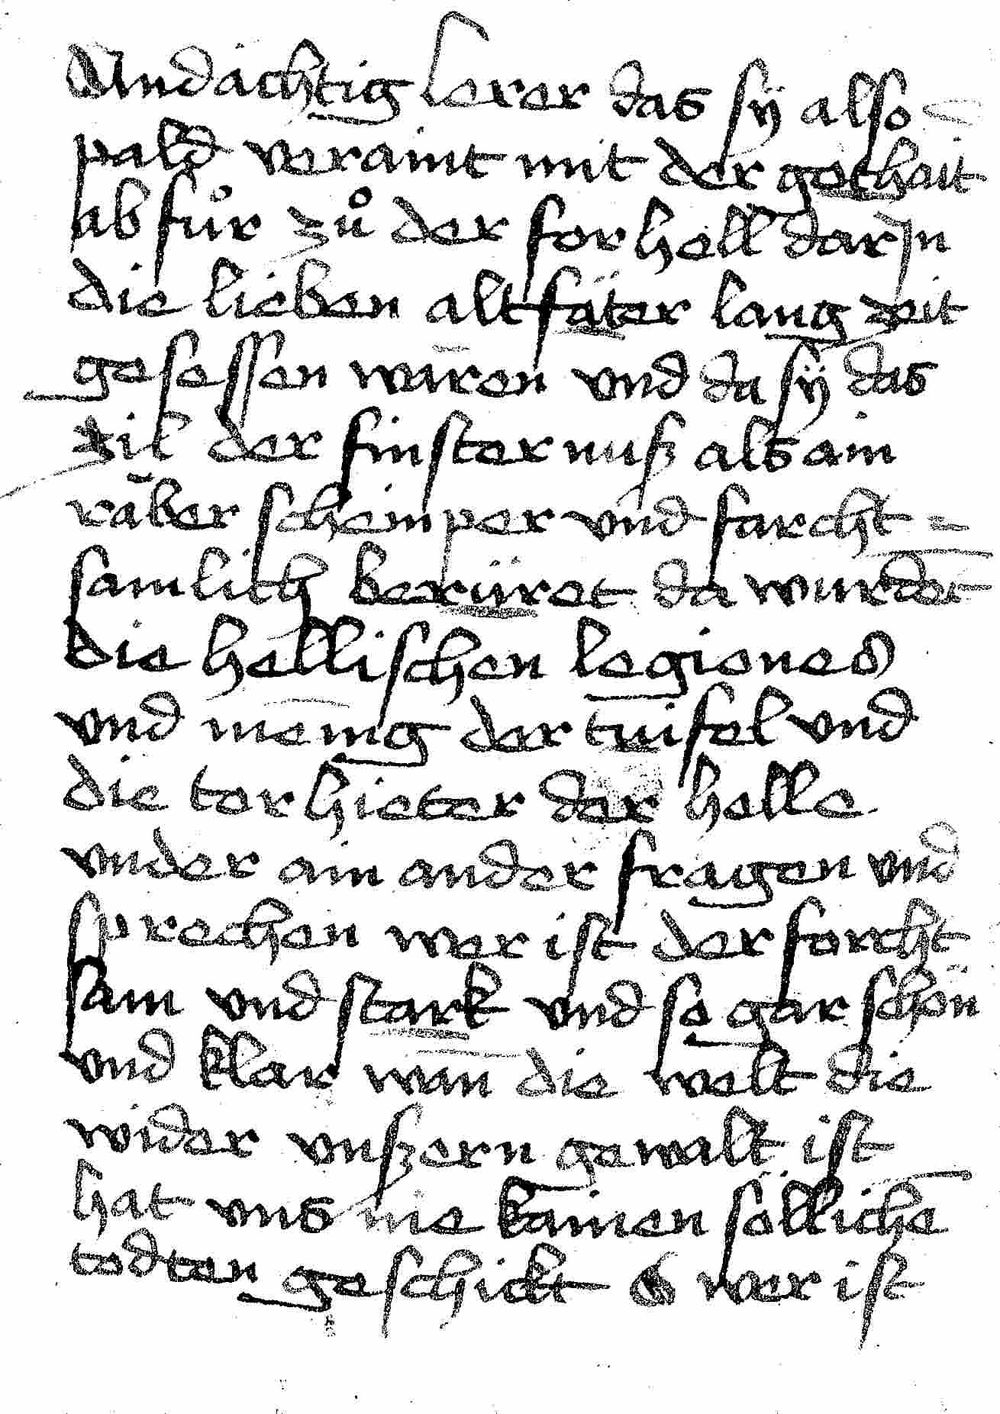 Andachtig lerer das sÿ also
pald veraint mit der gothait
ab fůr zů der for hell dar Jn
die lieben altfäter lang zeit
gesessen waren und da sÿ das
zil der finsternuß als ain
räber scheinper und farcht =
samlich berüret da wurdet
die hellischen legiones
vnd menig der tuifel vnd
die tor hieter der helle
vnder ain ander fragen vnd
sprechen wer ist der forcht
sam vnd stark vnd so gar schön
vnd klar wan die welt die
wider vnßern gewalt ist
hat vns nie kainen sölliche
todten geschickt O wer ist